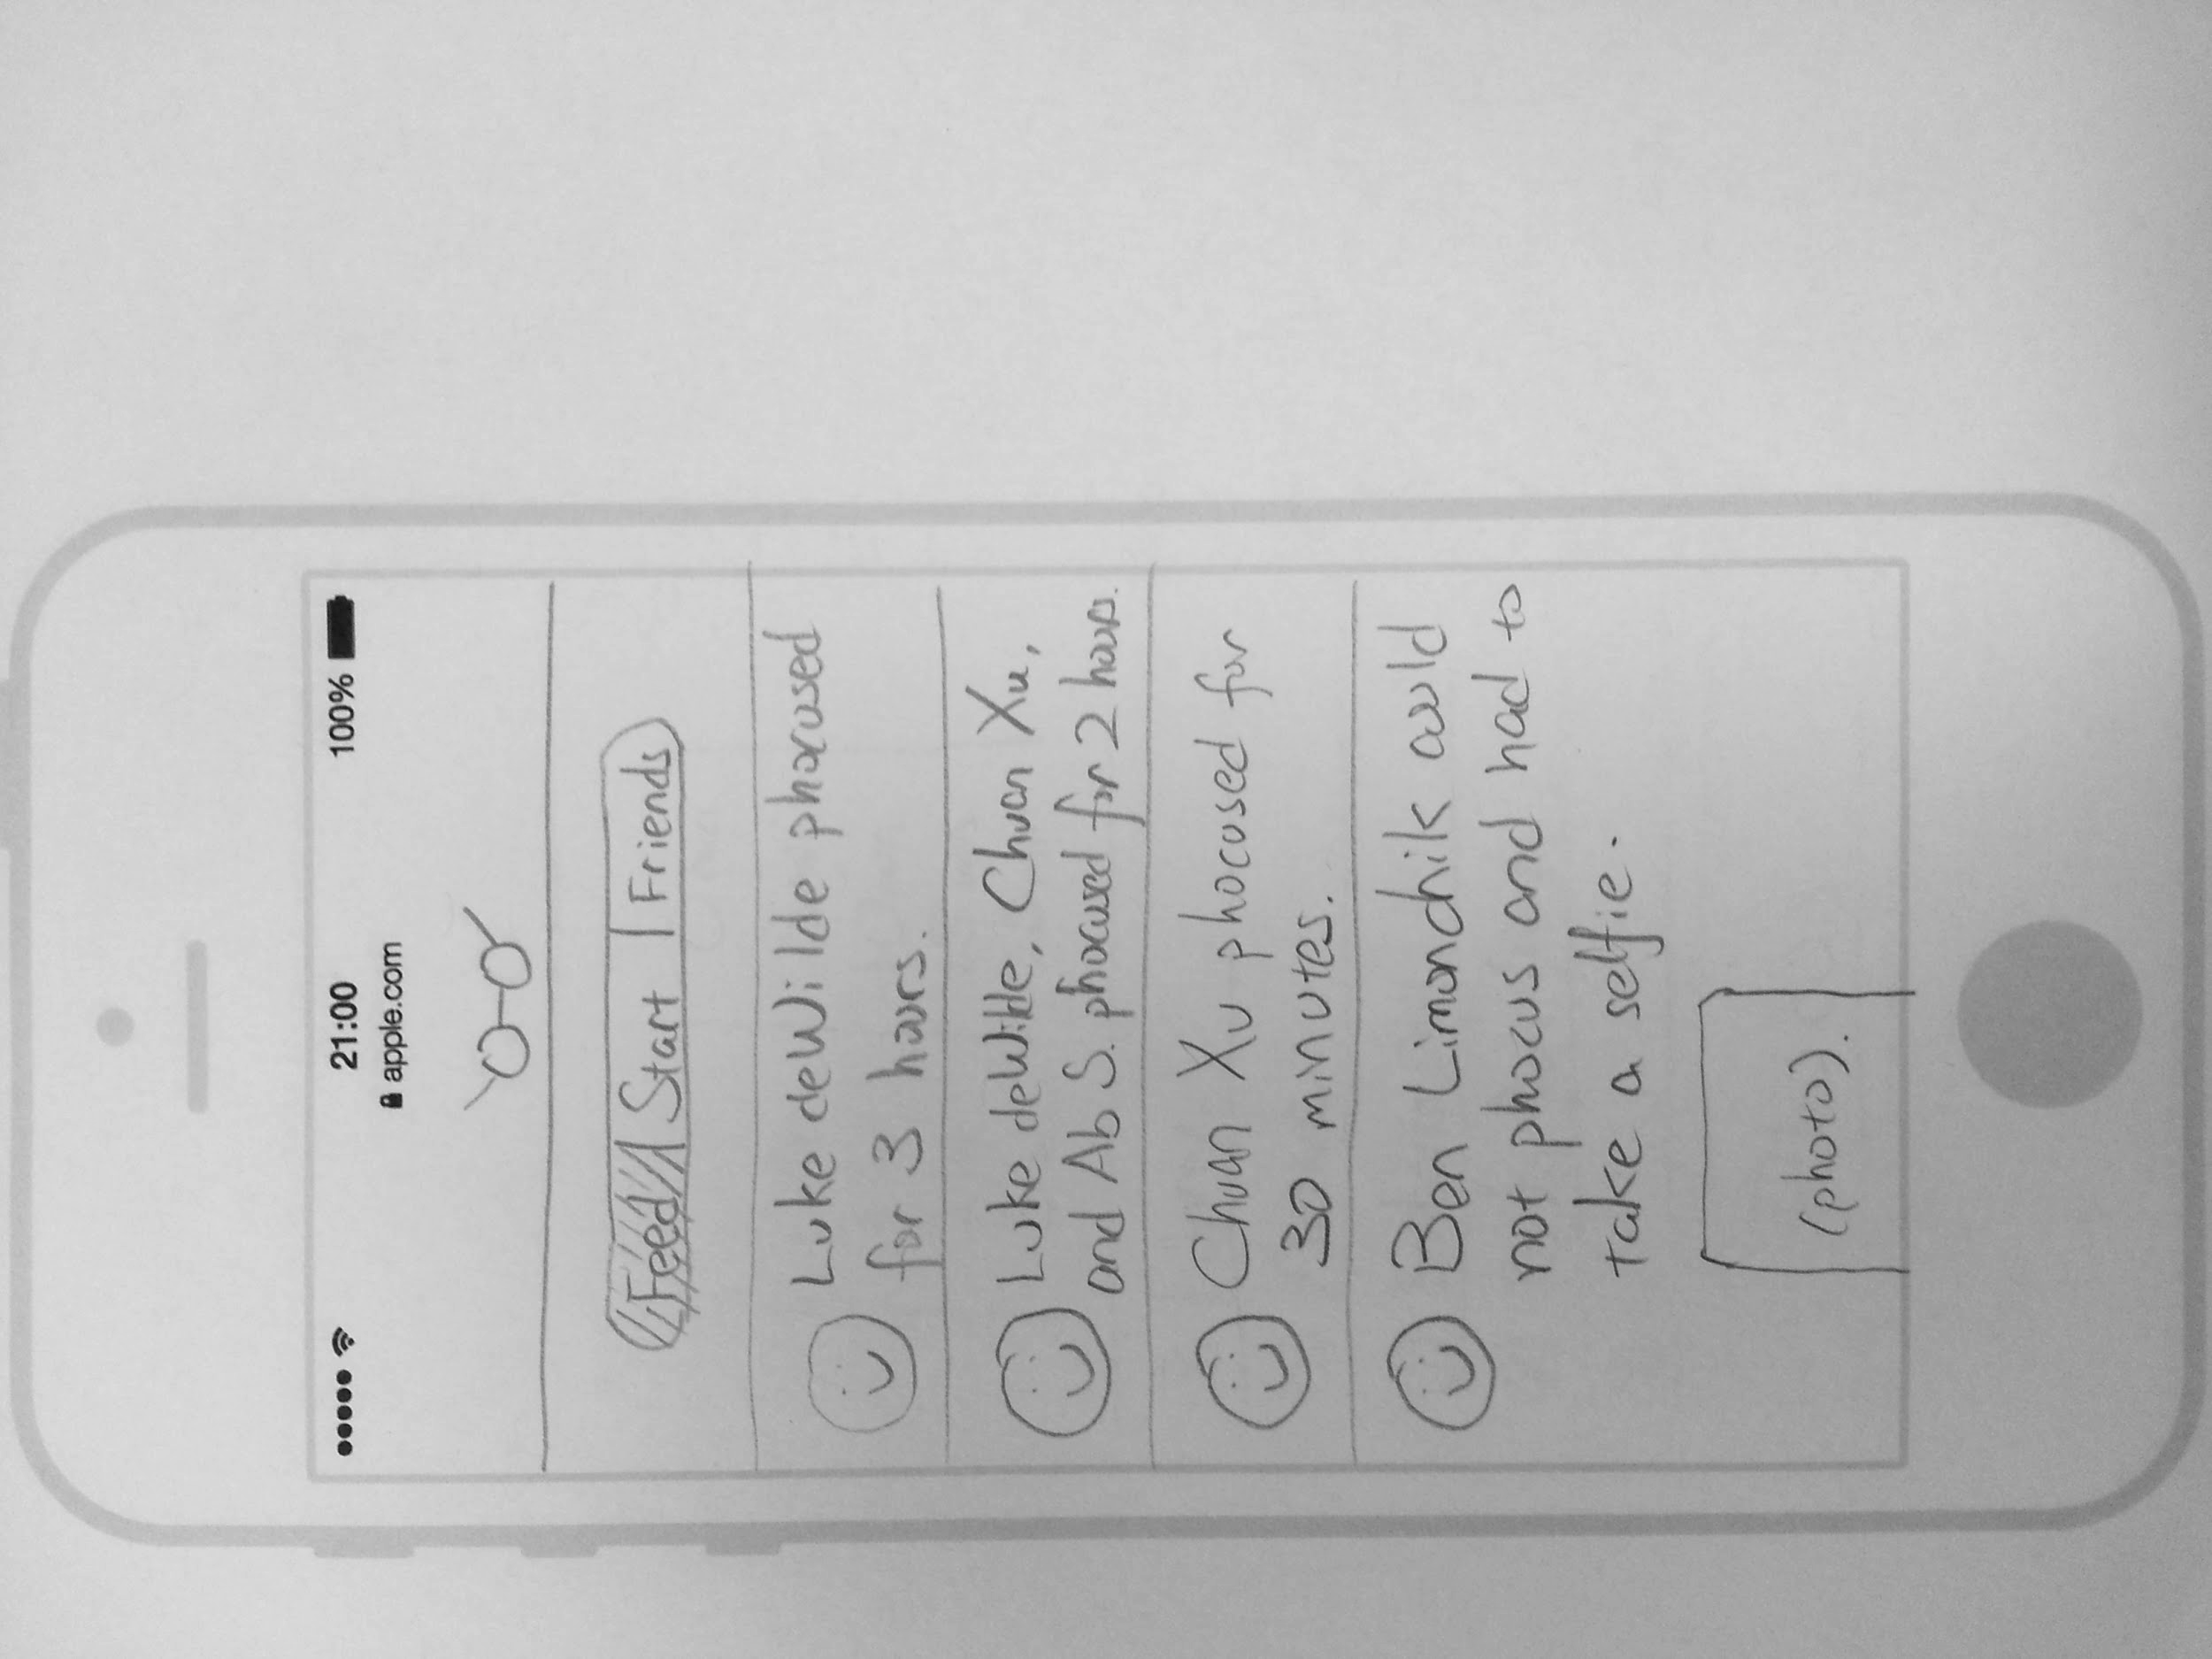 21:00 100%
apple.com
Feed Start Friends
Luke deWilde phocused
for 3 hours.
Luke deWilde, Chuan Xu,
and Ab S. phocused for 2 hours.
Chuan Xu phocused for
30 minutes.
Ben Limonchik could
not phocus and had to
take a selfie.
(photo).